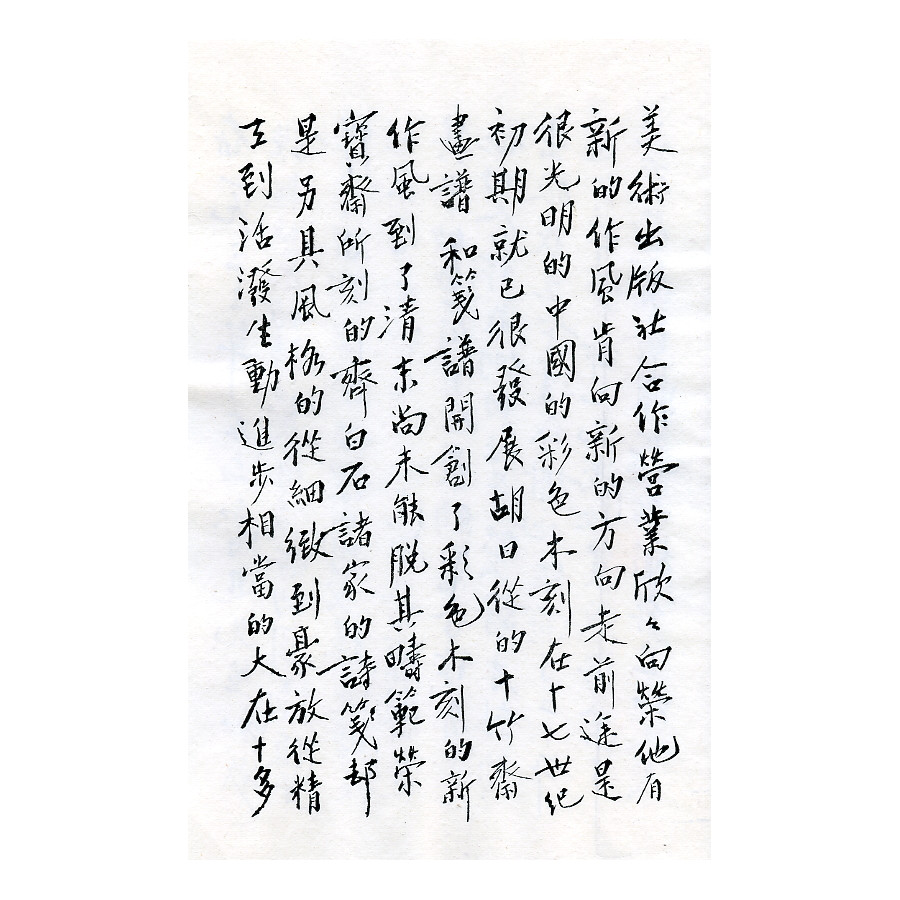 美術出版社合作營業欣々向榮他有
新的作風肯向新的方向走前途是
很光明的中國的彩色木刻在十七世紀
初期就已很發展胡曰從的十竹齋
畫譜和箋譜開創了彩色木刻的新
作風到了清末尚未能脫其疇範榮
寶齋所刻的齊白石諸家的詩箋却
是另具風格的從細緻到豪放從精
工到活潑生動進步相當的大在十多